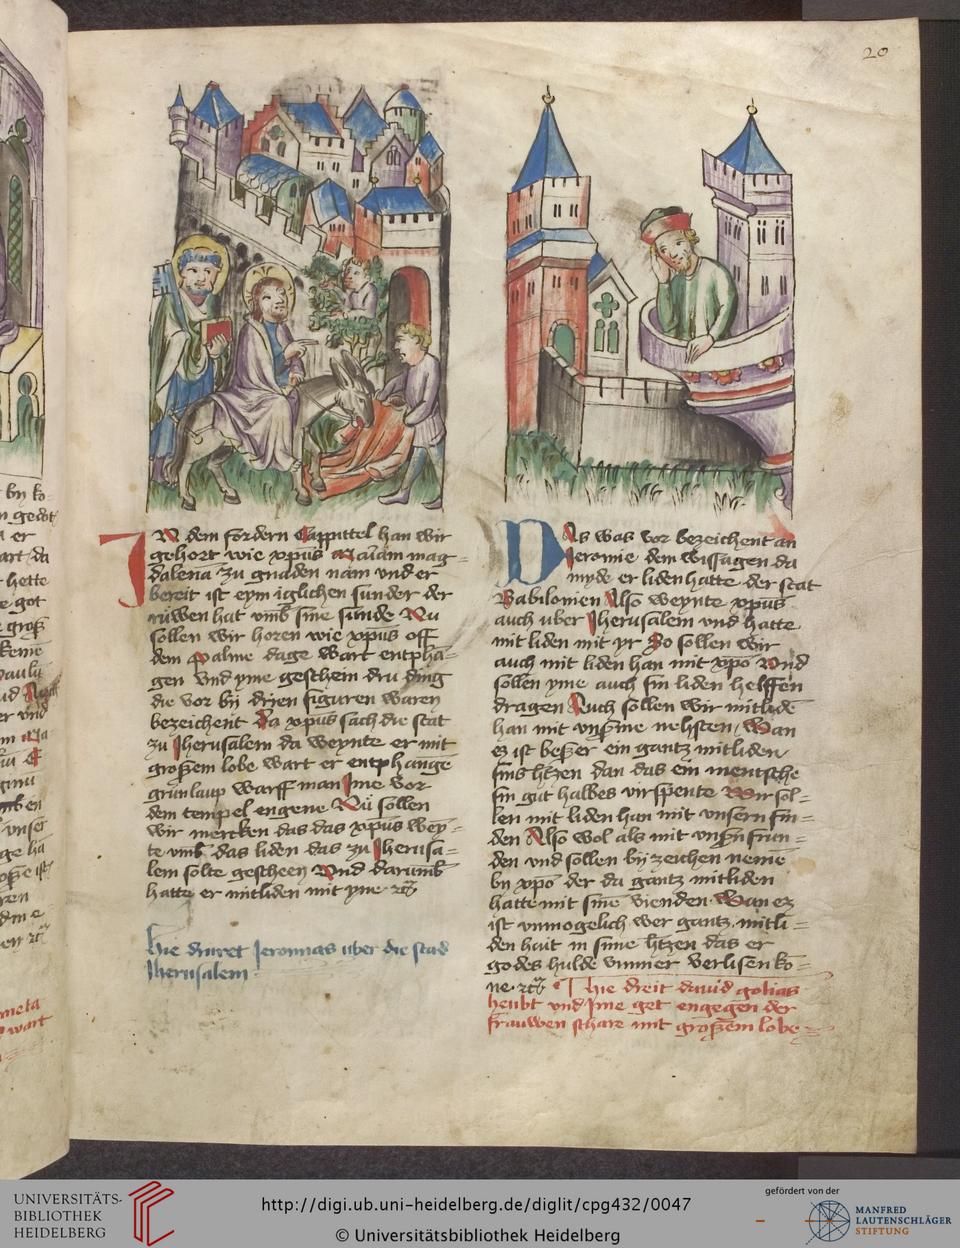 20
IN dem fordern Cappittel han wir
gehort wie xpus Mariam mag=
dalena zu gnaden nam vnd er
bereit ist eym iglichen sunder der
ruwen hat vmb sine sunde Nu
sollen wir horen wie xpus off
dem Palme dage wart entpha=
gen Vnd yme geschehn dru ding
die vor bij drien figuren waren
bezeichent Da xpus sach die stat
zu Jherusalem da weynte er mit
großem lobe wart er entphange
grun laup warff man Jme vor
dem tempel engene Nü sollen
wir mercken das das xpus wey=
te vmb das liden das zu Jherusa=
lem solte gescheen Vnd darumb
hatte er mitliden mit yme
Hie druret Jeronias uber die stad
Jherusalem
DAs was vor bezeichent an
Jeromie dem wissagen da
myde er liden hatte der stat
Babilonien Also weynte xpus
auch uber Jherusalem vnd hatte
mit liden mit yr So sollen wir
auch mit liden han mit xpo Vnd
sollen yme auch sin liden helffen
dragen Auch sollen wir mitlide
han mit vnserme nehsten Wan
ez ist beßer ein gantz mitliden
sins htzen dan das ein mentsche
sin gut halbes virspente Wir sol=
len mit liden han mit vnsern fin=
den Also wol als mit vnsern frun=
den vnd sollen bij zeichen neme
bij xpo der da gantz mitliden
hatte mit sine vienden Wan ez
ist vnmogelich wer gantz mitli=
den hait in sime htzen das er
godes hulde vmmer verlisen ko=
ne Hie dreit dauid golias
heubt vnd Jme get engegen der
frauwen schare mit großem lobe
UNIVERSITÄTS-
BIBLIOTHEK
HEIDELBERG
http://digi.ub.uni-heidelberg.de/diglit/cpg432/0047
© Universitätsbibliothek Heidelberg
gefördert von der
MANFRED
LAUTENSCHLÄGER
STIFTUNG